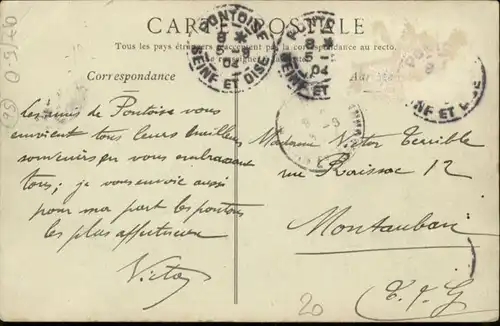 CARTE POSTALE
Tous les pays étrangers n'acceptent pas la correspondance au recto.
Correspondance
PONTOISE
SEINE ET OISE
5 04
Les amis de Pontoise vous
envoient tous leurs meilleurs
souvenirs en vous embrassant
tous; je vous envoie aussi
pour ma part les
les plus affectueux
Victor
Madame Victor Terrible
rue Raissac 12
Montauban
T. & G
20